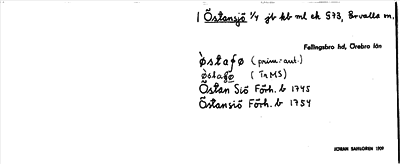 Östansjö ¼ jb kb ml ek 573, Ervalla sn.
Fellingsbro hd, Örebro län
ὸstafø (prim. aut.)
ὸstafø (InMS)
Östan Siö Förh. b 1745
Östansiö Förh. b 1754
JÖRAN SAHLGREN 1929